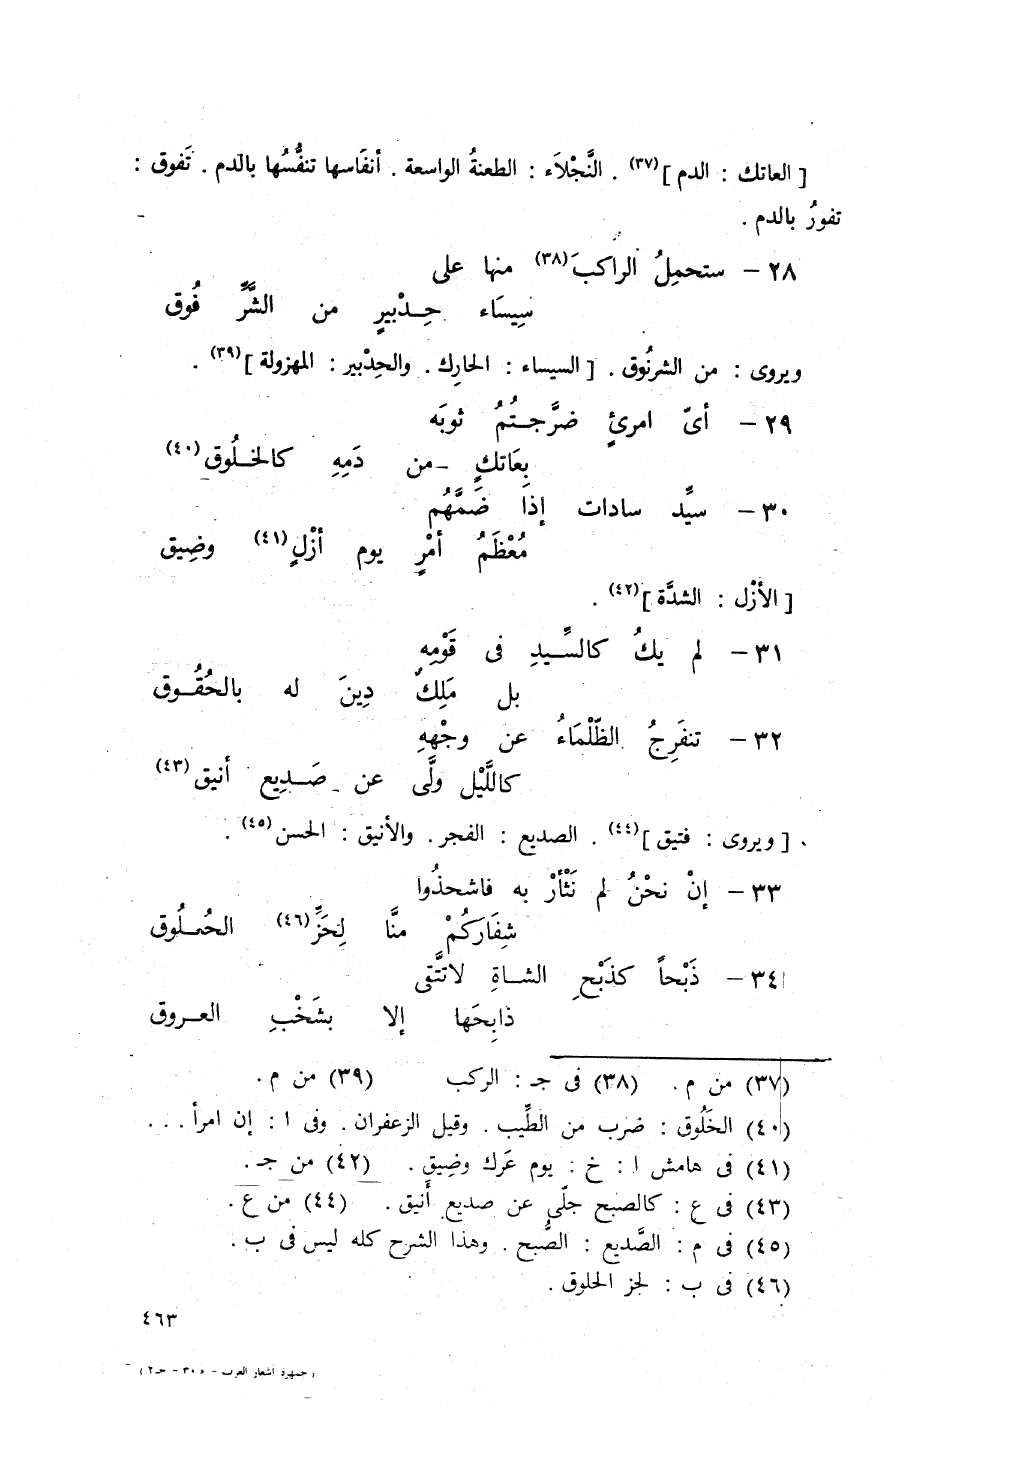 [ العاتك : الدم ](٣٧) . النَّجْلَاء : الطعنةُ الواسعة . أنفَاسها تنفُّسُها بالدم . تَفوق :
تفورُ بالدم .
٢٨ – ستحمِلُ الراكبَ(٣٨) منها على
سِيسَاء حِـدْبيرٍ من الشَّرِّ فُوق
ويروى : من الشرنُوق . [ السيساء : الحارِك . والحِدْبير : المهزولة ](٣٩) .
٢٩ – أىّ امرئٍ ضرَّجـتُمُ ثوبَه
بِعَاتكٍ من دَمِهِ كالخـلُوق(٤٠)
٣٠ – سيِّد سادات إذا ضَمَّهُم
مُعْظَمُ أمْرٍ يوم أزْلٍ(٤١) وضِيق
[ الأزْل : الشدَّة ](٤٢) .
٣١ – لم يكُ كالسِّـيدِ فى قَوْمِهِ
بل مَلِكٌ دِينَ له بالحُقُـوق
٣٢ – تنفَرِجُ الظّلْمَاءُ عن وجْههِ
كاللَّيْل ولَّى عن صَـدِيع أنيق(٤٣)
[ ويروى : فتيق ](٤٤) . الصديع : الفجر . والأنيق : الحسن(٤٥) .
٣٣ – إنْ نحْنُ لم نَثْأرْ به فاشحذُوا
شِفَاركُمْ منَّا لِحَزِّ(٤٦) الحُـلُوق
٣٤ – ذَبْحاً كذَبْحِ الشـاةِ لاتتَّقى
ذابِحَها إلا بشَخْبِ العـروق
(٣٧) من م . (٣٨) فى جـ : الركب (٣٩) من م .
(٤٠) الخَلُوق : ضرب من الطِّيب . وقيل الزعفران . وفى ا : إن امرأ . . .
(٤١) فى هامش ا : خ : يوم عَرك وضِيق . (٤٢) من جـ .
(٤٣) فى ع : كالصبح جلّى عن صديع أَنيق . (٤٤) من ع .
(٤٥) فى م : الصَّديع : الصُّبح . وهذا الشرح كله ليس فى ب .
(٤٦) فى ب : لجز الحلوق .
٤٦٣
( جمهرة أشعار العرب – م ٣٠ – جـ ٢ )